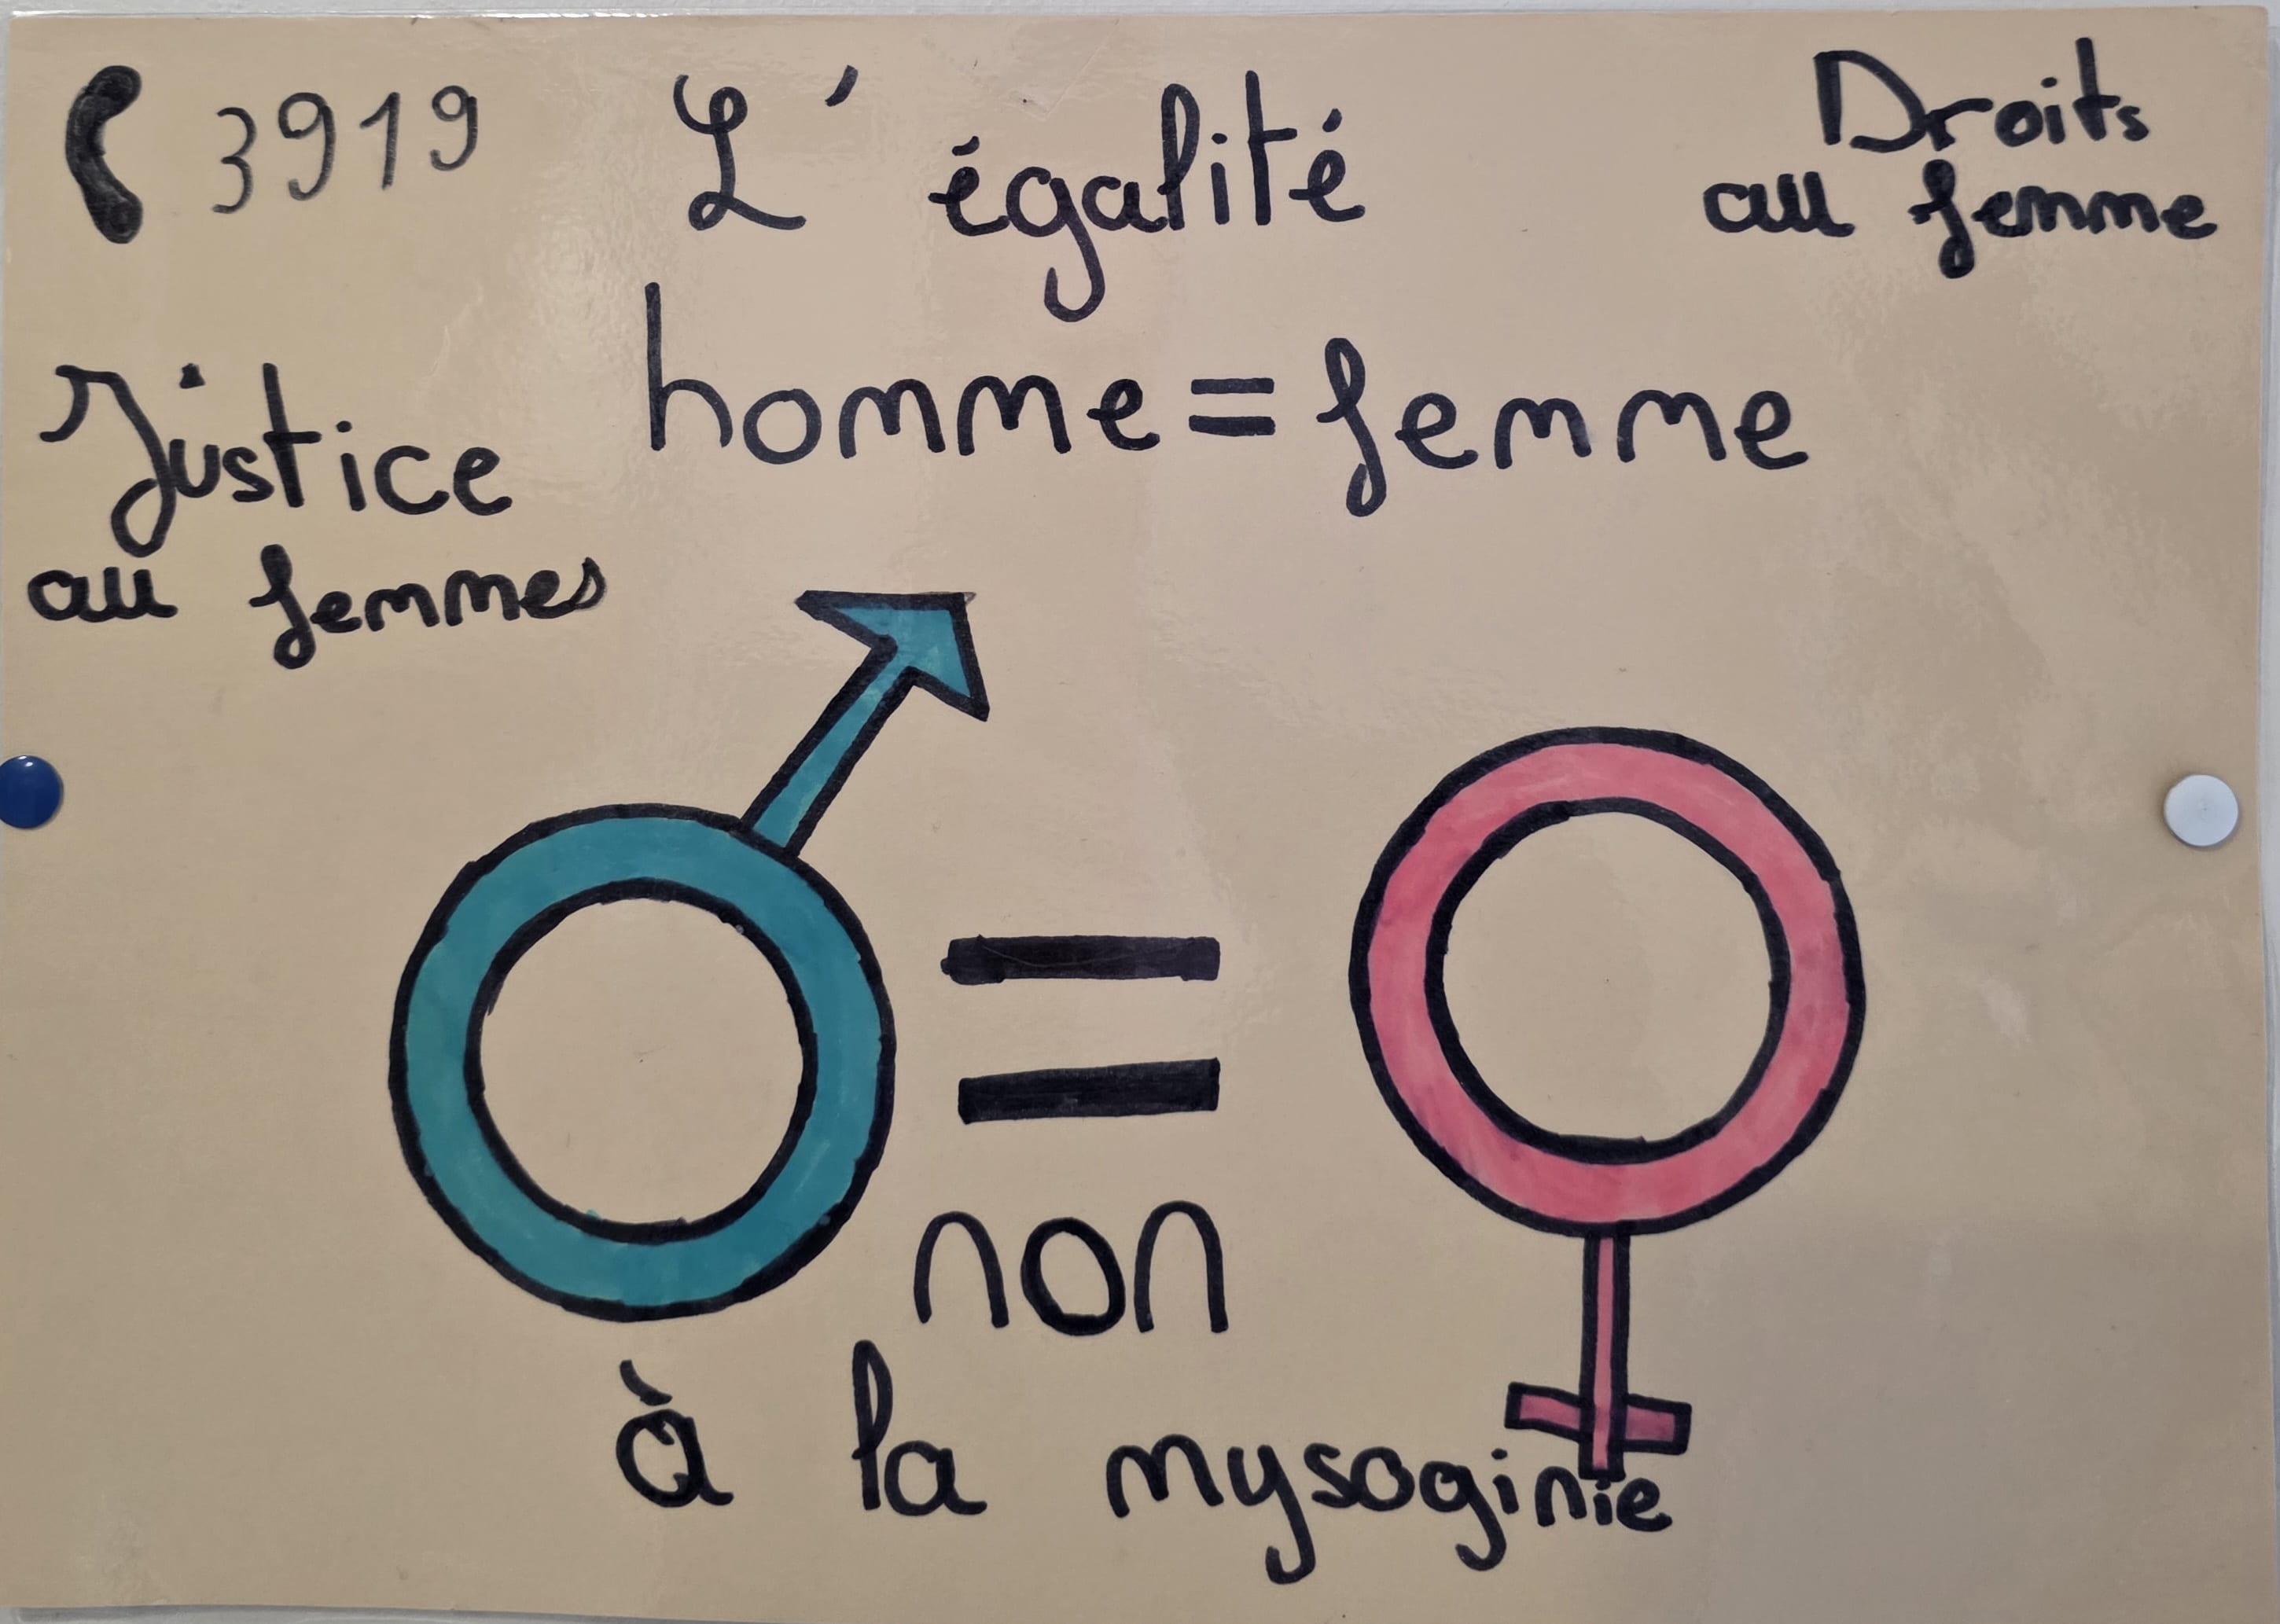 3919
L'égalité
Droits
au femme
homme = femme
Justice
au femmes
=
non
à la mysoginie